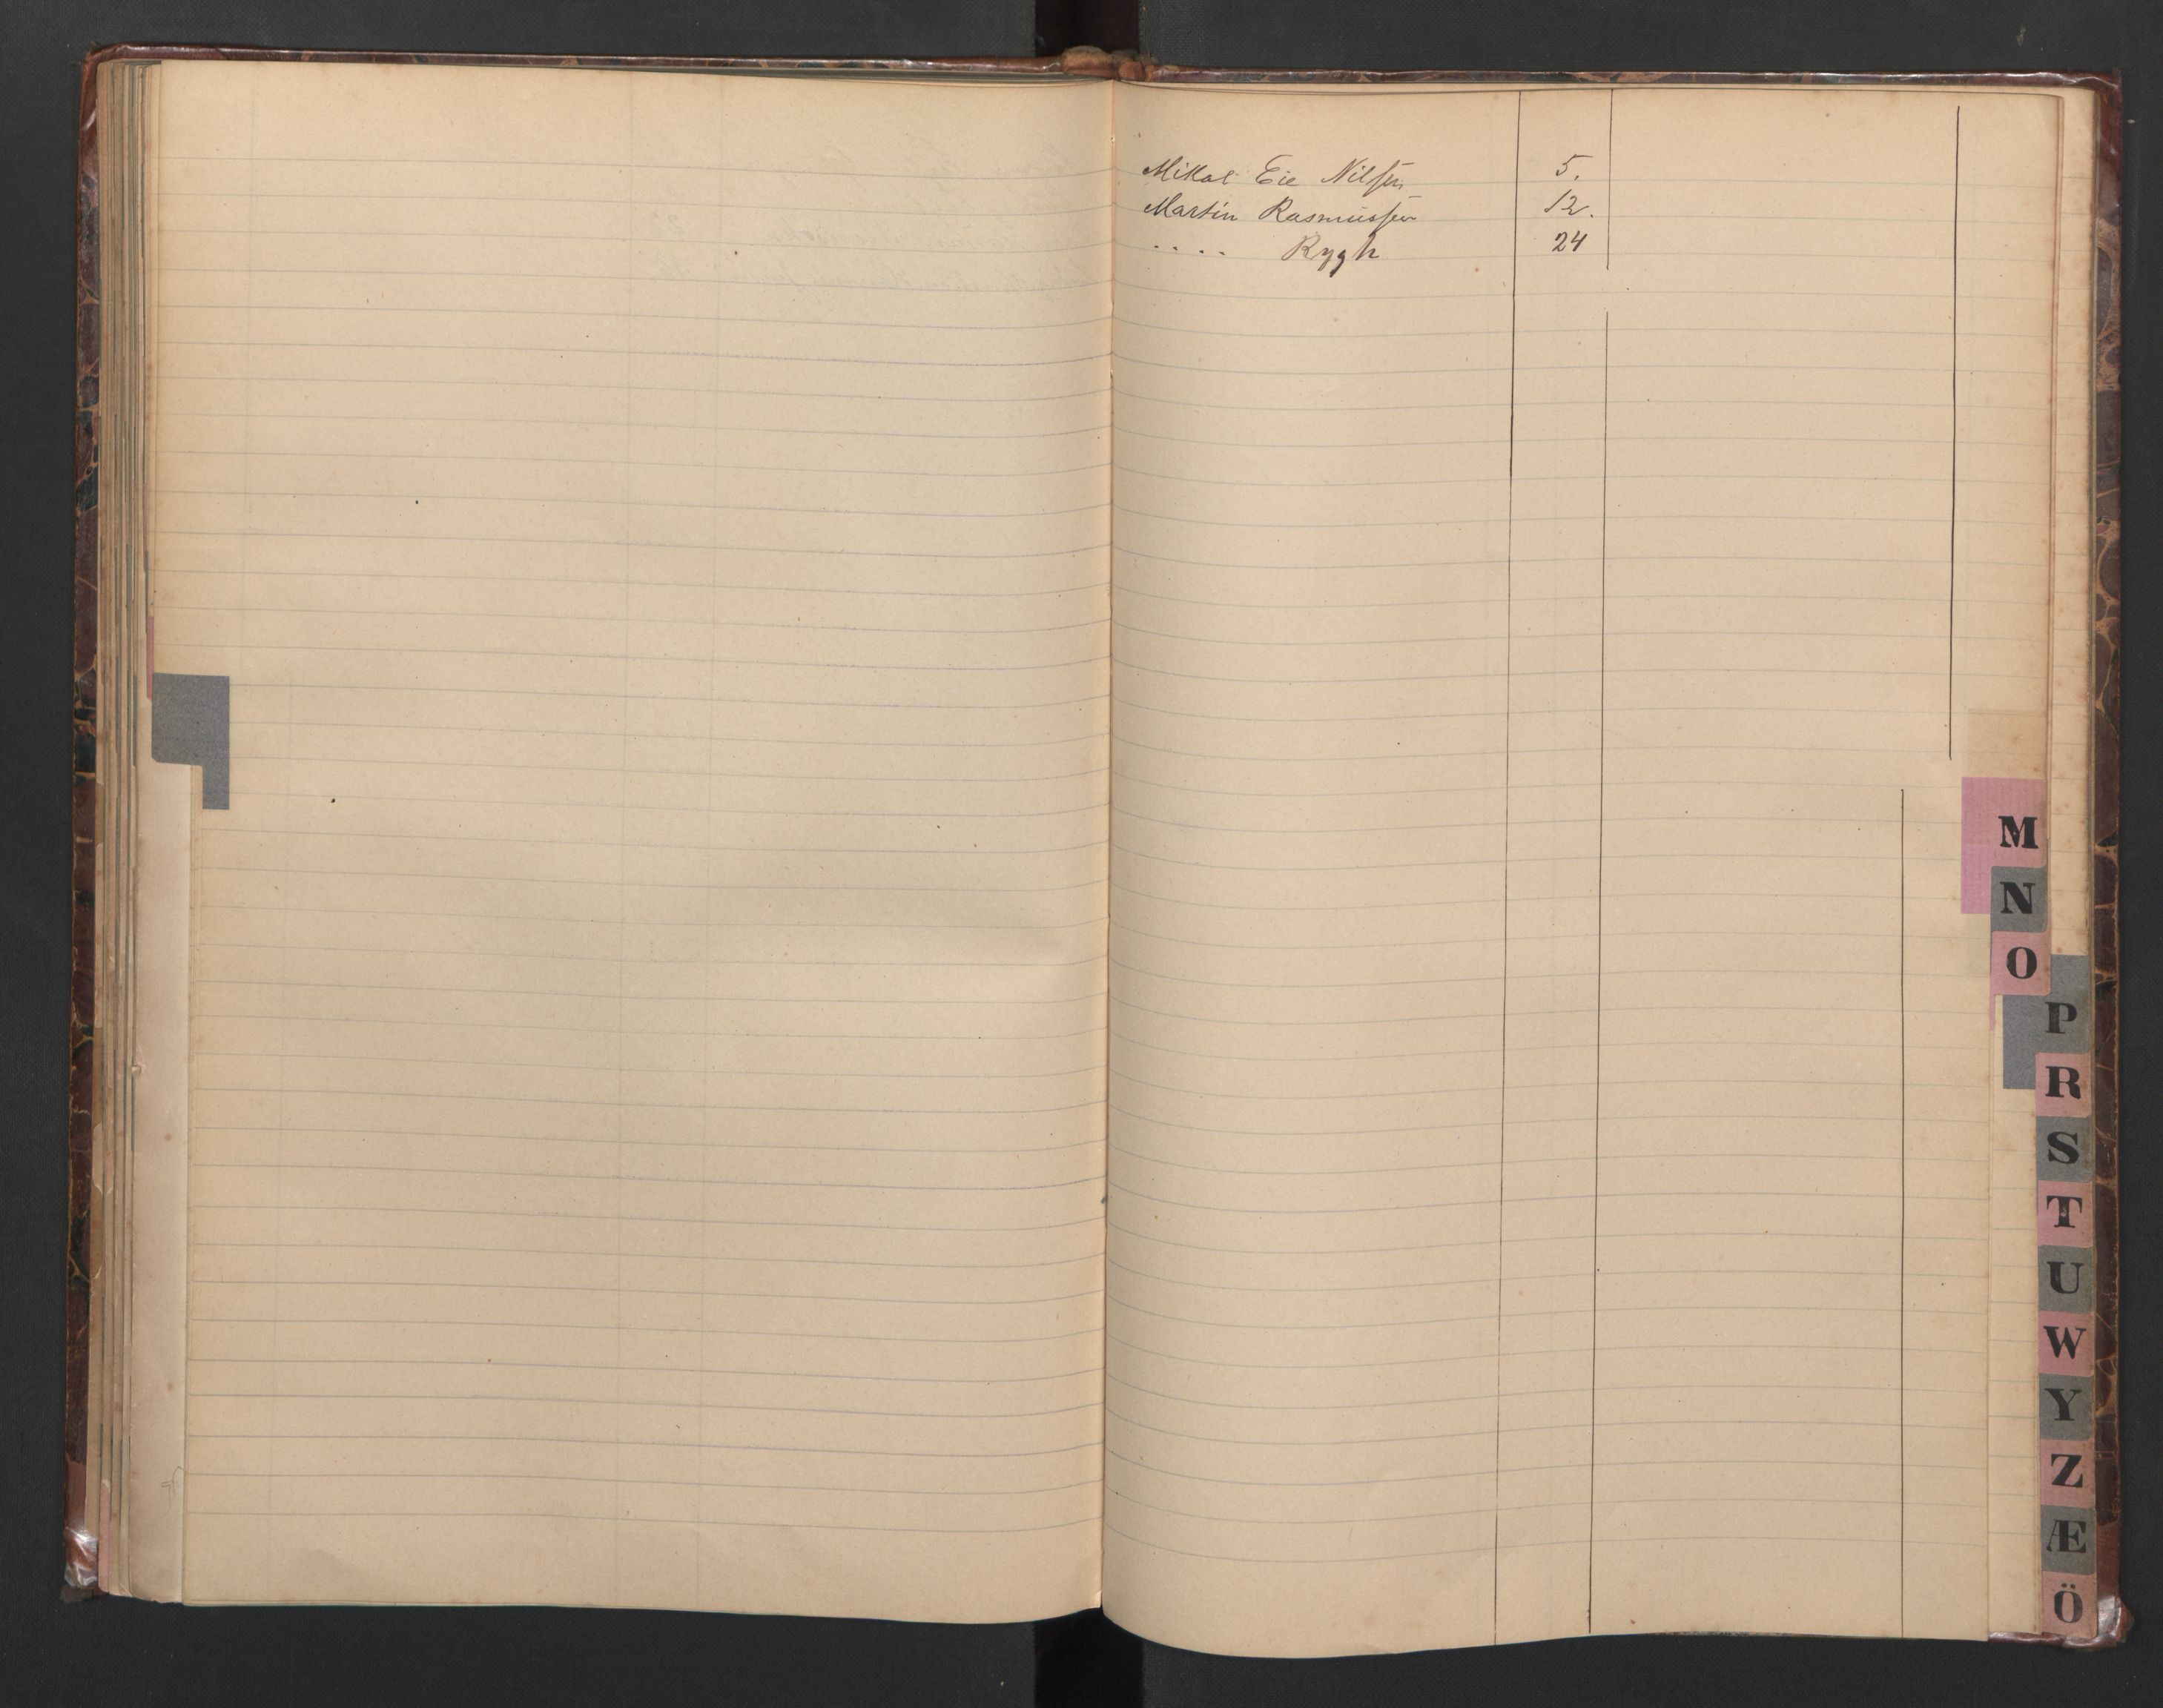 Mikal Eie Nilssen 5.
Martin Rasmussen 12.
.... Rygh 24
M
N
O
P
R
S
T
U
W
Y
Z
Æ
Ö